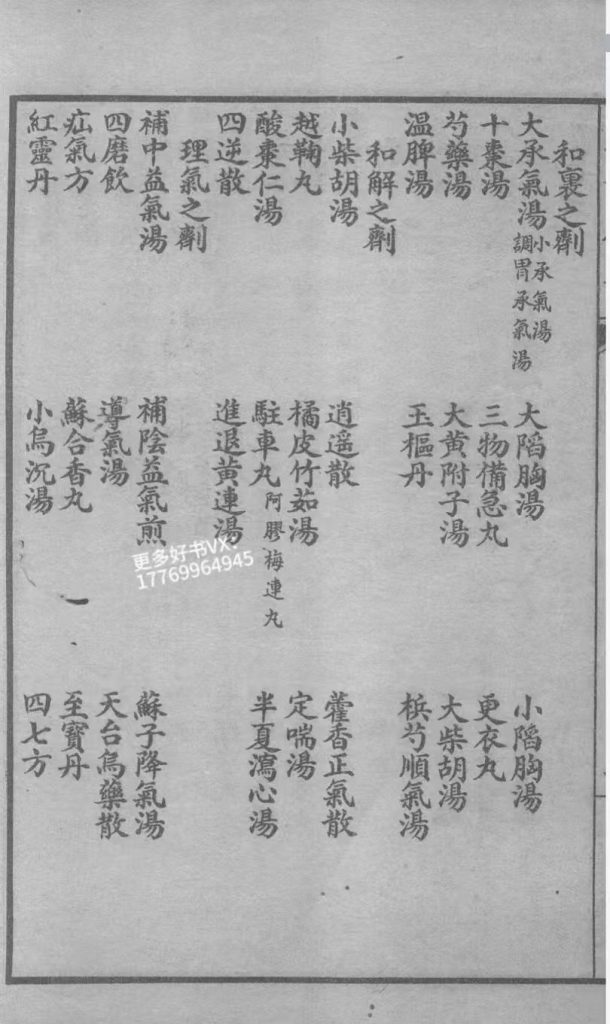 和裏之劑
大承氣湯 小承氣湯 調胃承氣湯 大陷胸湯 小陷胸湯
十棗湯 三物備急丸 更衣丸
芍藥湯 大黃附子湯 大柴胡湯
溫脾湯 玉樞丹 檳芍順氣湯
和解之劑
小柴胡湯 逍遥散 藿香正氣散
越鞠丸 橘皮竹茹湯 定喘湯
酸棗仁湯 駐車丸 阿膠梅連丸 半夏瀉心湯
四逆散 進退黃連湯
理氣之劑
補中益氣湯 補陰益氣煎 蘇子降氣湯
四磨飲 導氣湯 天台烏藥散
疝氣方 蘇合香丸 至寶丹
紅靈丹 小烏沉湯 四七方
更多好书VX:
17769964945